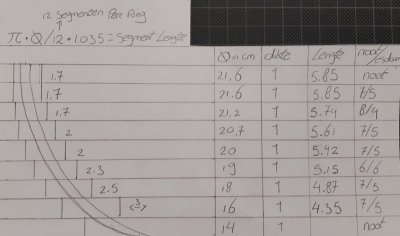 12 Segmenten Per Ring
π · Ø / 12 · 1.035 = Segment Lengte
Ø in cm dikte Lengte noot/esdoorn
1.7 21,6 1 5.85 noot
1.7 21.6 1 5.85 7/5
1.7 21,2 1 5.74 8/4
2 20,7 1 5.61 7/5
2 20 1 5.42 7/5
2.3 19 1 5.15 6/6
2.5 18 1 4.87 7/5
3 16 1 4.35 7/5
14 1 noot